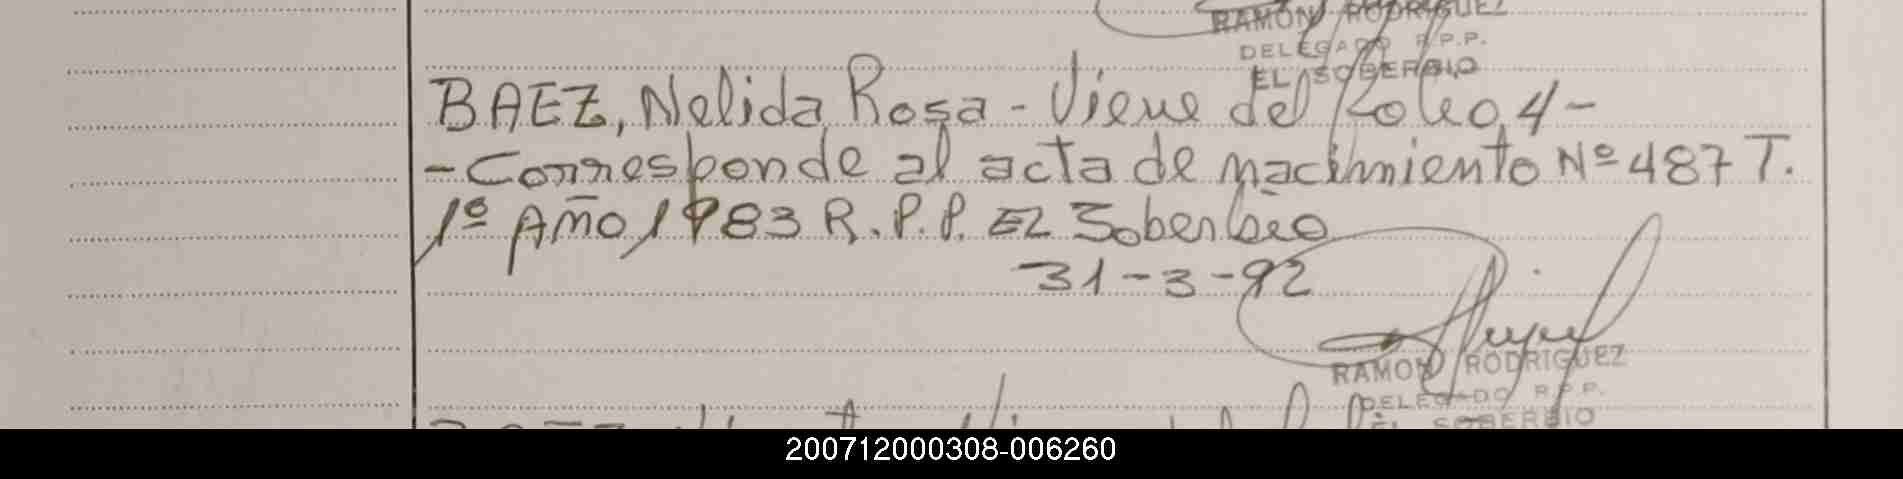 RAMON RODRIGUEZ
DELEGADO R.P.P.
EL SOBERBIO
BAEZ, Nelida Rosa - Viene del Folio 4 -
- Corresponde al acta de nacimiento Nº 487 T.
1º Año 1983 R. P. P. El Soberbio
31-3-92
RAMON RODRIGUEZ
DELEGADO R.P.P.
EL SOBERBIO
200712000308-006260